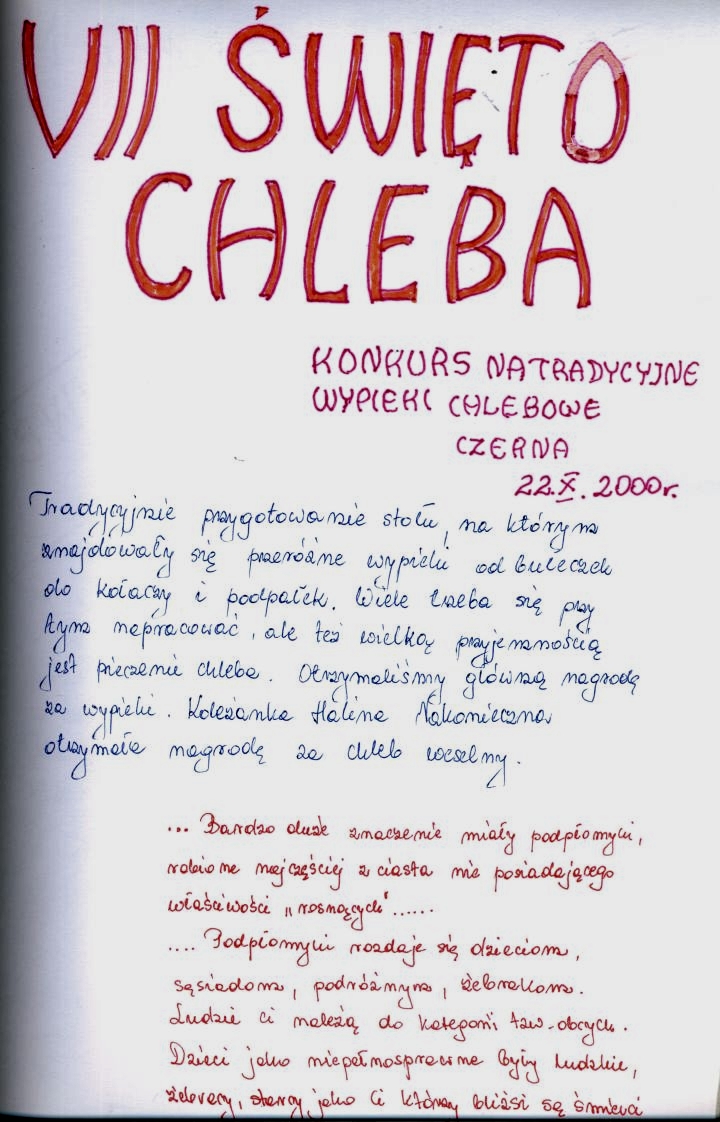 VII ŚWIĘTO
CHLEBA
KONKURS NA TRADYCYJNE
WYPIEKI CHLEBOWE
CZERNA
22.X.2000r.
Tradycyjnie przygotowanie stołu, na którym
znajdowały się przeróżne wypieki od bułeczek
do kołaczy i podpałek. Wiele trzeba się przy
tym napracować, ale też wielką przyjemnością
jest pieczenie chleba. Otrzymaliśmy główną nagrodę
za wypieki. Koleżanka Halina Nakonieczna
otrzymała nagrodę za chleb weselny.
... Bardzo duże znaczenie miały podpłomyki,
robione najczęściej z ciasta nie posiadającego
właściwości „rosnących"......
.... Podpłomyki rozdaje się dzieciom,
sąsiadom, podróżnym, żebrakom.
Ludzie ci należą do kategorii tzw. obcych.
Dzieci jako niepełnosprawne były ludzkie,
żebracy, starcy jako ci którzy bliżsi są śmierci